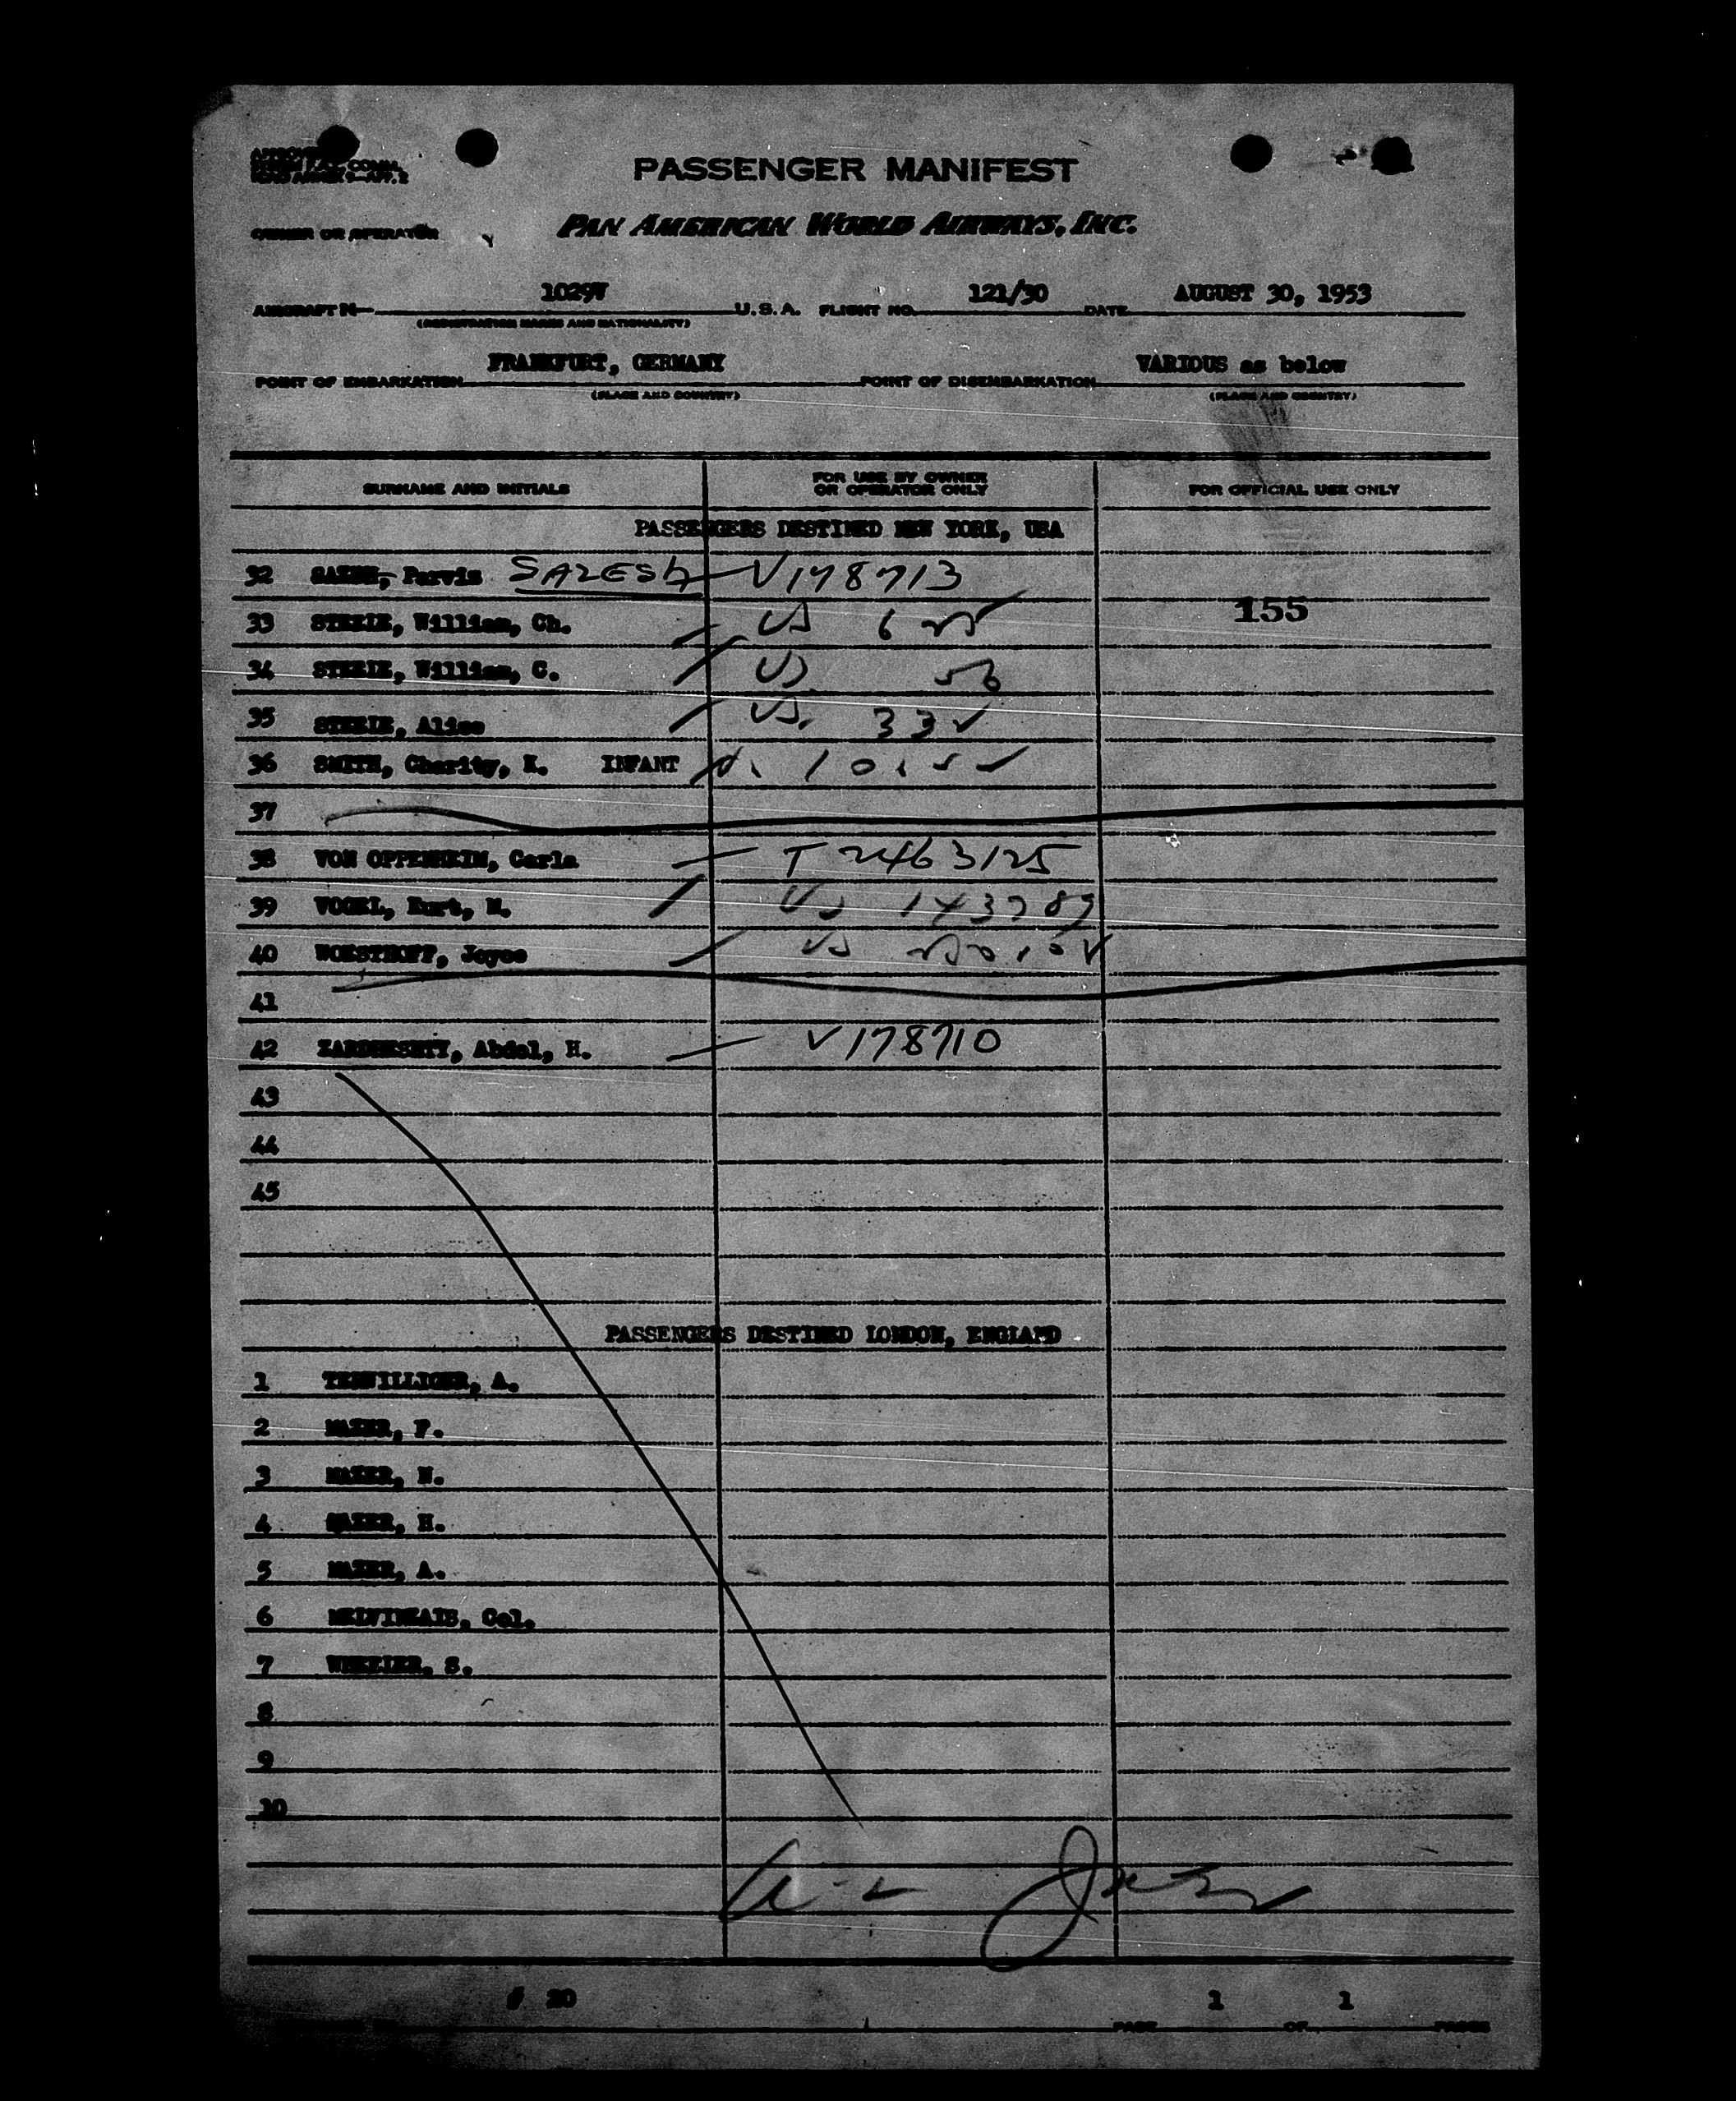 PASSENGER MANIFEST
OWNER OR OPERATOR PAN AMERICAN WORLD AIRWAYS, INC.
AIRCRAFT N— 1029V U.S.A. FLIGHT NO. 121/30 DATE AUGUST 30, 1953
(REGISTRATION MARKS AND NATIONALITY)
POINT OF EMBARKATION FRANKFURT, GERMANY POINT OF DISEMBARKATION VARIOUS as below
(PLACE AND COUNTRY) (PLACE AND COUNTRY)
SURNAME AND INITIALS FOR USE BY OWNER OR OPERATOR ONLY FOR OFFICIAL USE ONLY
PASSENGERS DESTINED NEW YORK, USA
32 Parvis SAZESH V178713
155
33 STEELE, William, Ch. US
34 STEELE, William, C. US 56
35 STEELE, Alice US. 33
36 SMITH, Charity, K. INFANT
37
38 VON OPPENHEIM, Carla T 2463125
39 VOGEL, Kurt, M. US 143789
40 WOESTHOFF, Joyce US
41
42 Abdol, H. V178710
43
44
45
PASSENGERS DESTINED LONDON, ENGLAND
1 TERWILLIGER, A.
2 MAZER, F.
3 MAZER, N.
4 MAZER, H.
5 MAZER, A.
6 Col.
7 WHEELER, S.
8
9
10
# 20
PAGE 1 OF 1 PAGES